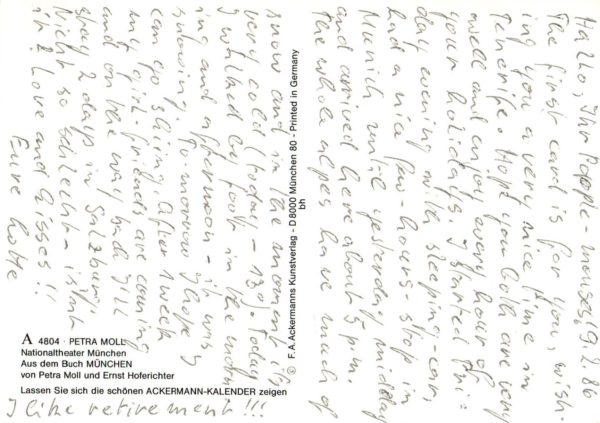 Hallo, Ihr Poeple-mouses! 9.2.86
The first card is for you, wish-
ing you a very nice time in
Tenerife. Hope you both are very
well and enjoy every hour of
your holidays. I started Fri-
day evening with sleeping-car,
had a nice few-hours-stop in
Munich until yesterday midday
and arrived here about 5 p.m.
The whole alpes have much of
snow and in the moment it's
very cold (today -13°). Today
I walked by foot in the morn-
ing and afternoon - it was
snowing. Tomorrow I hope I
can go skiing. After 1 week
my girl-friends are coming
and on the way back I'll
stay 2 days in Salzburg.
Nicht so schlecht - isn't
it? Love and kisses!!
Eure Lotte
I like retirement!!!
A 4804 · PETRA MOLL
Nationaltheater München
Aus dem Buch MÜNCHEN
von Petra Moll und Ernst Hoferichter
Lassen Sie sich die schönen ACKERMANN-KALENDER zeigen
© F. A. Ackermanns Kunstverlag - D 8000 München 80 - Printed in Germany
bh